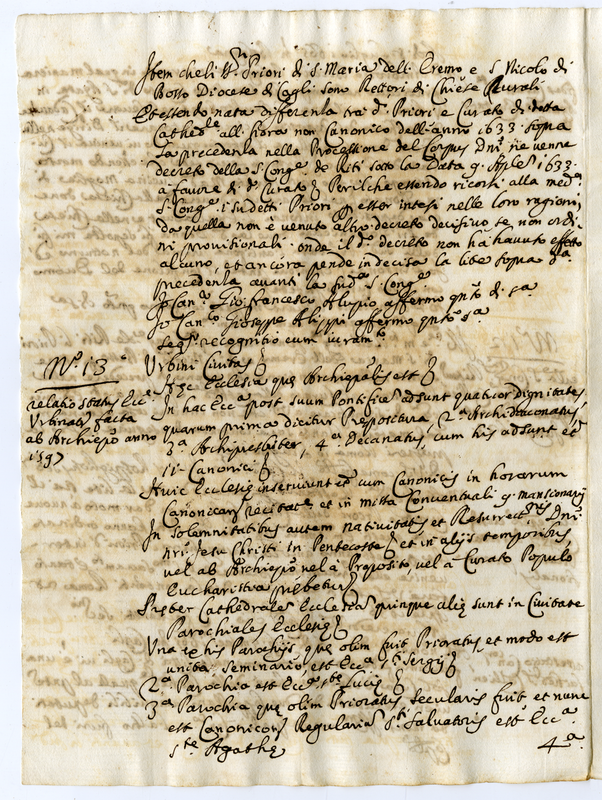 Item che li M.ri Priori di S. Maria dell'Eremo e S. Nicolo di
Bosso Diocese di Cagli sono Rettori di Chiese Rurali
Et essendo nata differenza tra d.i Priori e Curato di detta
Cathed.le all'hora non Canonico dell'anno 1633. sopra
la precedenza nella Processione del Corpus Dni ne venne
decreto della S. Cong.e de Riti sotto la Data 9. Aplis 1633.
a favore di d.o Curato Perilche essendo ricorsi alla med.a
S. Cong.e i sudetti Priori p esser intesi nelle loro ragioni,
da quella non è venuto altro decreto decisivo se non ordi-
ni provisionali. onde il d.o decreto non hà havuto effetto
alcuno, et ancora pende indecisa la lite sopra d.a
precedenza avanti la sud.a S. Cong.e
Io Can.co Gio: Francesco affermo q.nto di s.a
Io Can.co Gioseppe Alippi affermo q.nto s.a
seq.r recognitio cum iuram.to
N.o 13
Urbini Civitas
Hæc Ecclesia quę Archiepãlis est
relatio status Ecc.e
Urbinatis facta
ab Archiepõ anno
1597
In hac Ecc.a post suum Pontificẽ adsunt quatuor dignitates
quarum prima dicitur Prepositura, 2.a Archidiaconatus
3.a Archipresbiter, 4.a Decanatus, cum his adsunt et.
11. Canonici
Huic Ecclesię inserviunt et. cum Canonicis in horarum
Canonicarũ recitat.e et in missa Conventuali 9. mansionarij
In solemnitatibus autem nativitatis et Resurrect.nis Dni
nri Jesu Christi in Pentecoste et in alijs temporibus
vel ab Archiepõ vel à Preposito, vel à Curato Populo
Eucharistia prębetur
Pręter Cathedrales Ecclesias quinque alię sunt in Civitate
Parochiales Ecclesię
Una ex his Parochijs, quę olim fuit Prioratus, et modo est
unita Seminario, est Ecc.a S.ti Sergij
2.a Parochia est Ecc.a S.tę Lucię
3.a Parochia quę olim Prioratus secularis fuit, et nunc
est Canonicorũ Regularium S.ti Salvatoris est Ecc.a
S.tę Agathę
4.a